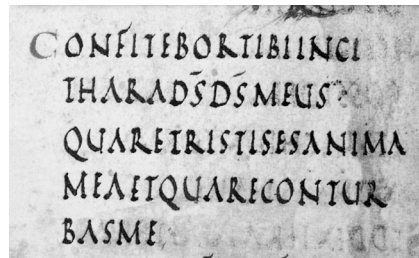 CONFITEBORTIBIINCI
THARADS̄DS̄MEUS
QUARETRISTISESANIMA
MEAETQUARECONTUR
BASME